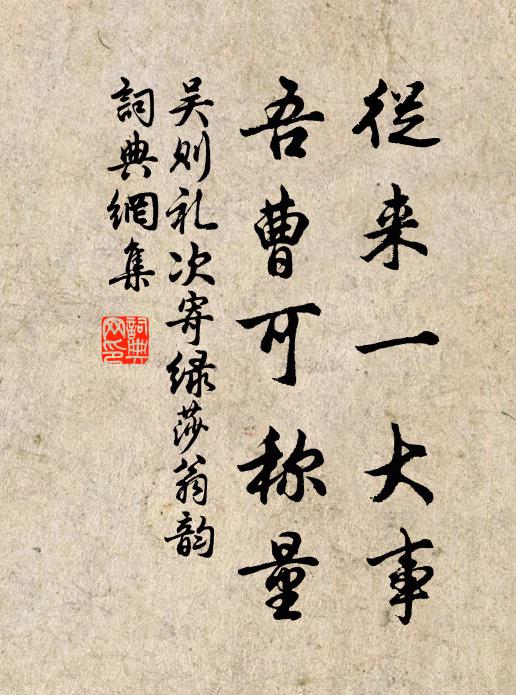 從来一大事
吾曹可称量
吴则礼次寄绿莎翁韵
詞典網集
詞典网印